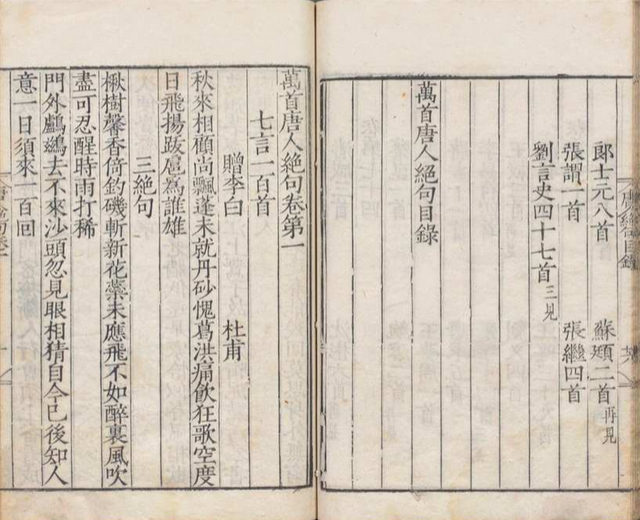 郎士元八首　蘇頲二首再見
張謂一首　張繼四首
劉言史四十七首三見
萬首唐人絕句目錄
萬首唐人絕句卷第一
七言一百首
贈李白　杜甫
秋來相顧尚飄蓬未就丹砂愧葛洪痛飲狂歌空度
日飛揚跋扈為誰雄
三絕句
楸樹馨香倚釣磯斬新花蘂未應飛不如醉裏風吹
盡可忍醒時雨打稀
門外鸕鷀去不來沙頭忽見眼相猜自今已後知人
意一日須來一百回